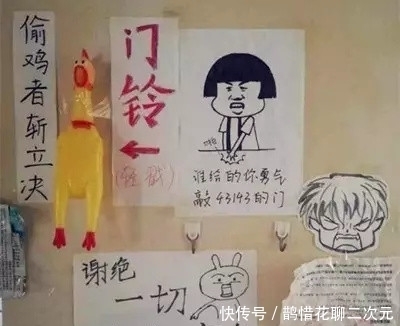 偷鸡者斩立决
门铃
(轻戳)
啪
谁给的你勇气
敲43143的门
谢绝
一切
快传号/鹊惜花聊二次元